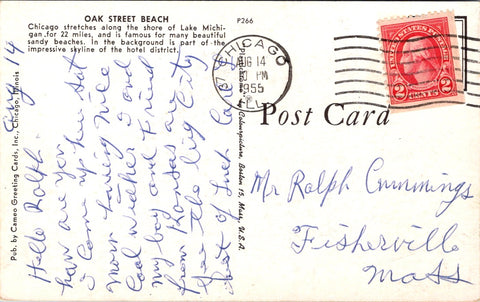 OAK STREET BEACH
Chicago stretches along the shore of Lake Michi-
gan for 22 miles, and is famous for many beautiful
sandy beaches. In the background is part of the
impressive skyline of the hotel district.
P266
Pub. by Cameo Greeting Cards, Inc., Chicago, Illinois
Aug 14
Hello Rolph.
how are you
I Come up here Sat
Morn haveing Nice
Cool weather I and
my boy and Friend
from Kansas are
See the big City
best of Luck
CHICAGO
AUG 14
PM
1955
ILL.
UNITED STATES POSTAGE
2 CENTS 2
Colourpicture, Boston 15, Mass., U.S.A.
Post Card
Mr Ralph Cummings
Fisherville
Mass